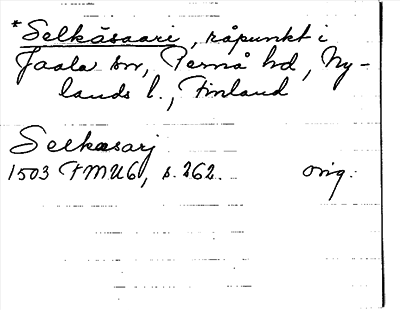 *Selkäsaari, råpunkt i
Jaala sn, Pernå hd, Ny-
lands l., Finland
Selkasarj
1503 FMU6, s. 262. orig.